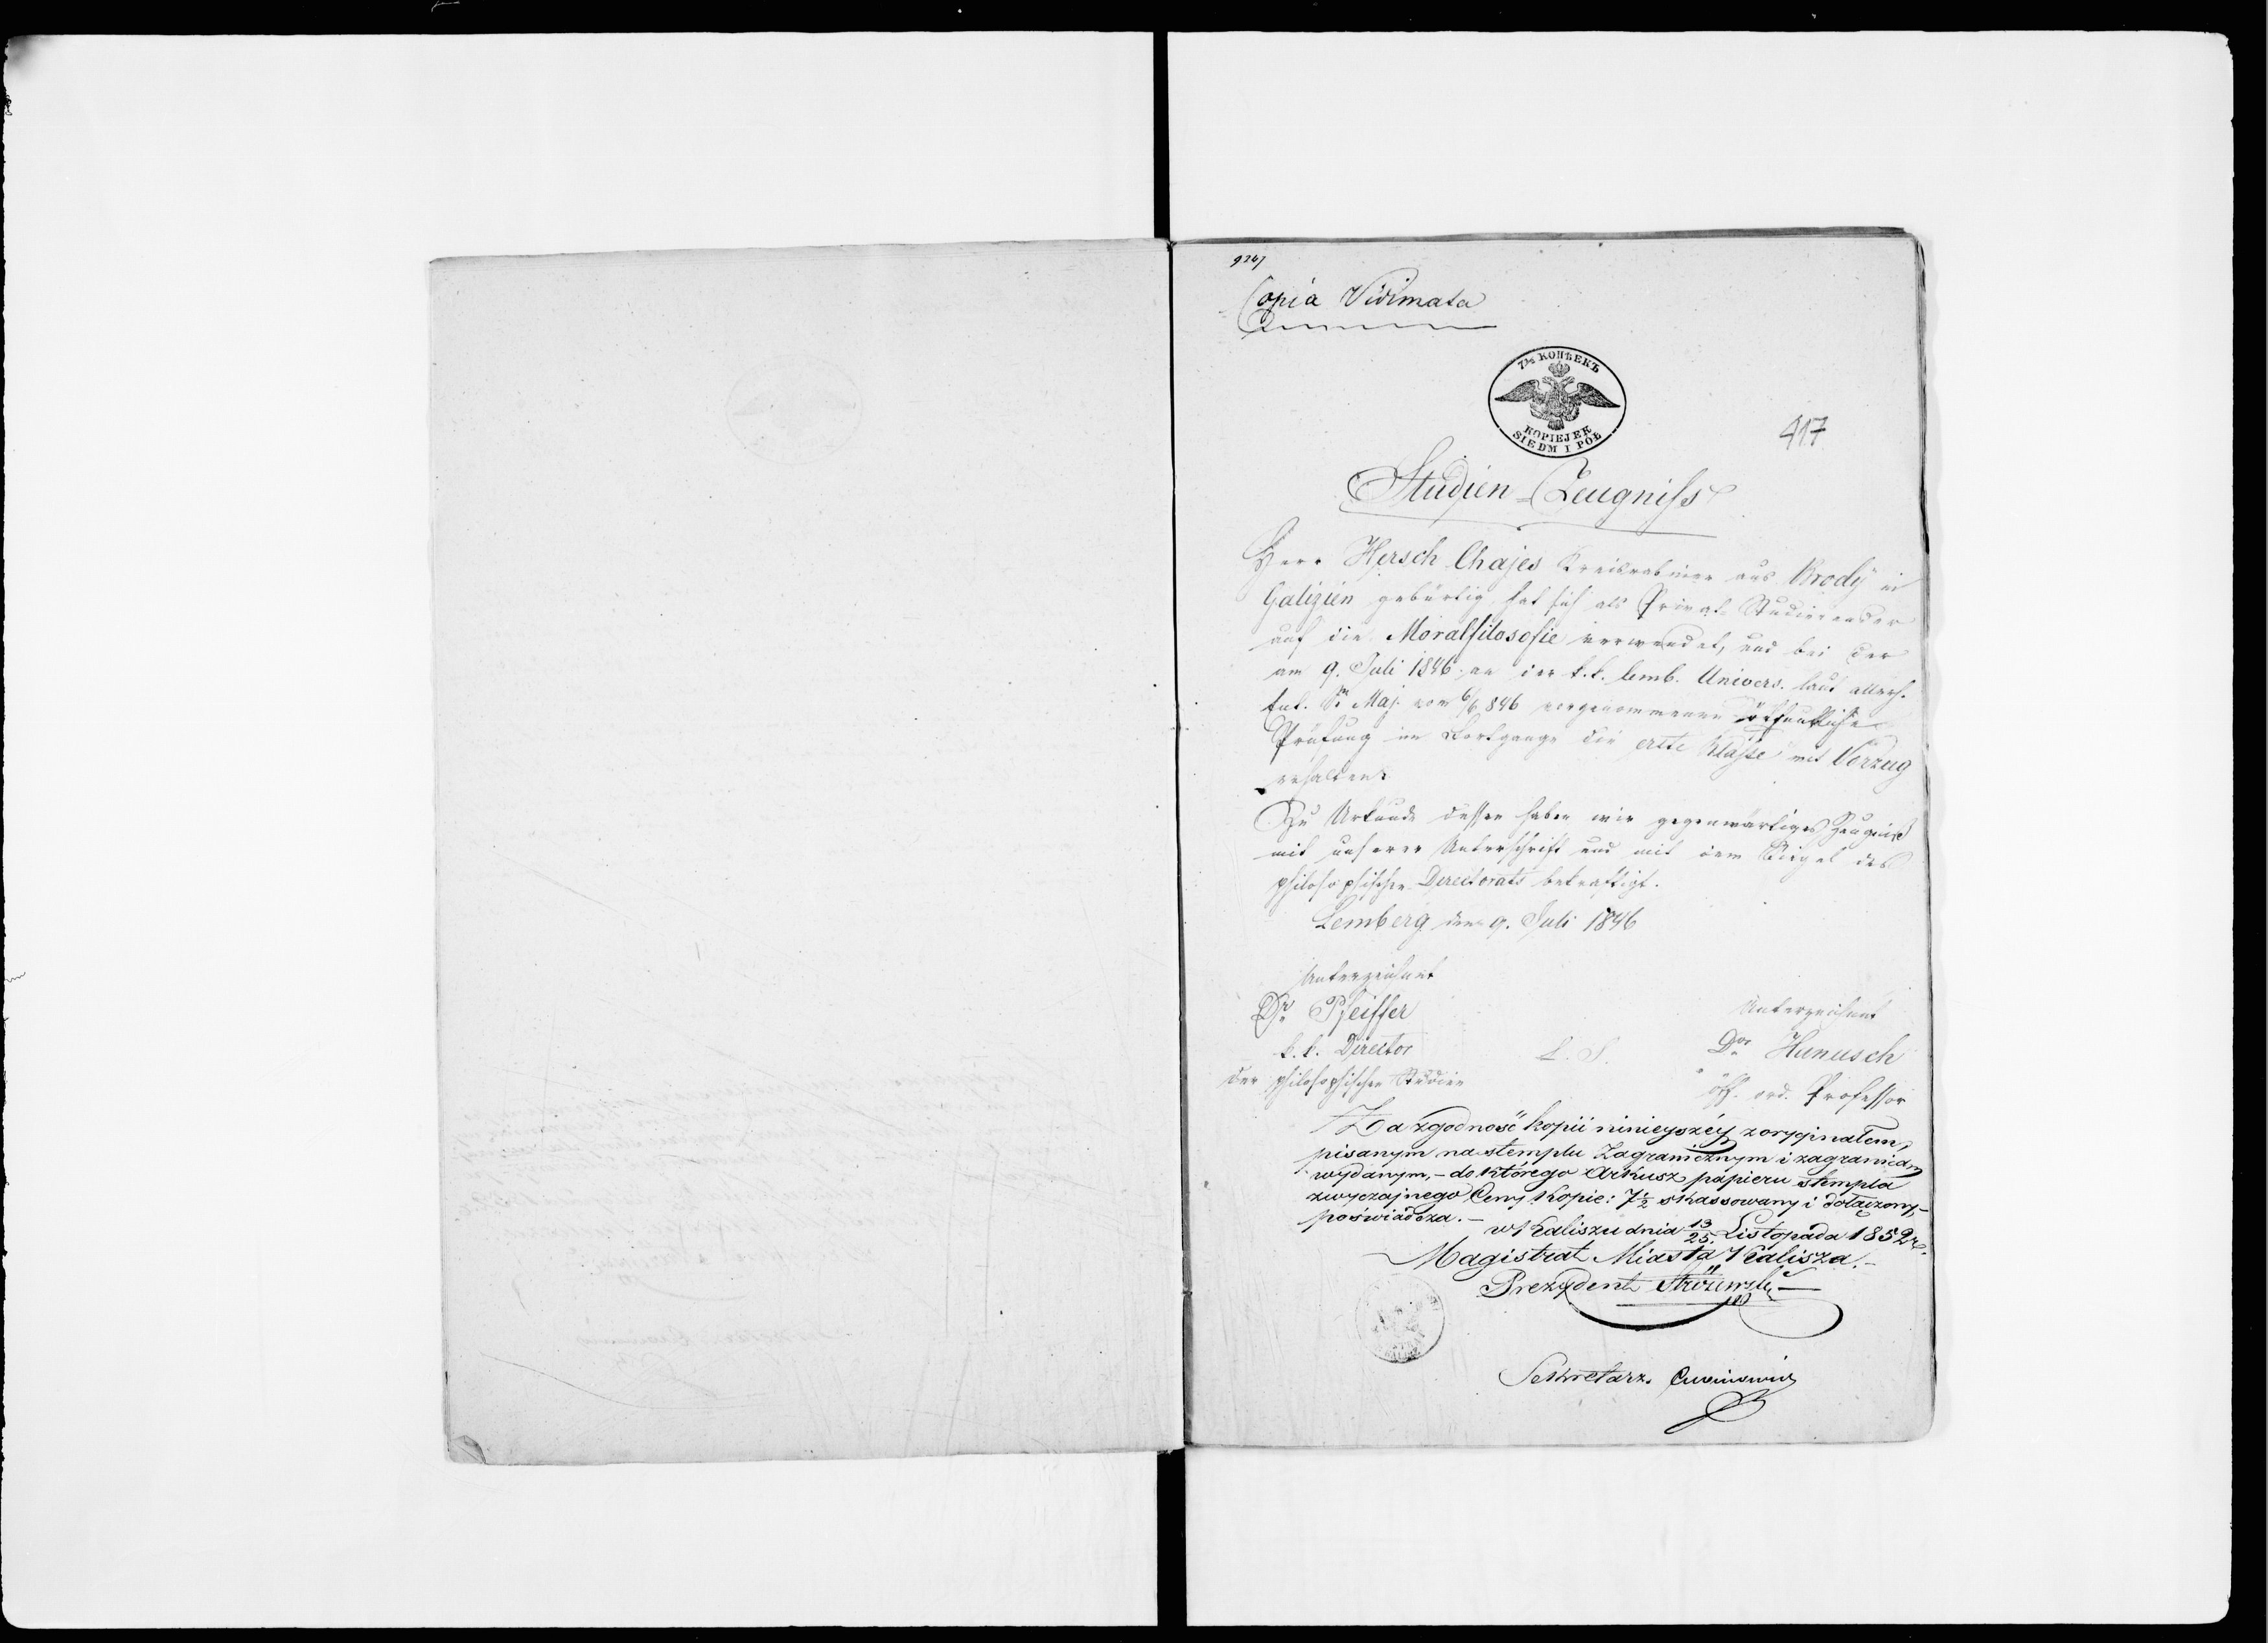 9247
Copia Vidimata
7½ КОПѢЕКЪ
KOPIEJEK
SIEDM I PÓŁ
417
Studien-Zeugniss
Herr Hersch Chajes Kreisrabiner aus Brody in
Galizien gebürtig hat sich als Privat-Studierender
auf die Moralfilosofie verwendet, und bei der
am 9. Juli 1846 an der k.k. lemb. Univers. laut allerh.
Ent. Sr Maj. vom 6/6 846 vorgenommenen öffentlichen
Prüfung im Fortgange die erste Klasse mit Vorzug
erhalten.
Zu Urkunde dessen haben wir gegenwärtiges Zeugniß
mit unserer Unterschrift und mit dem Siegel des
philosophischen Directorats bekräftigt.
Lemberg den 9. Juli 1846
Unterzeichnet
Dr. Pfeiffer
k.k. Director
der philosophischen Studien
L. S.
Unterzeichnet
Dor Hanusch
öff. ord. Professor
Za zgodność kopii ninieyszéy z oryginałem,
pisanym na stemplu Zagranicznym i zagranicą
wydanym, - do którego Arkusz papieru stempla
zwyczajnego Ceny Kopie: 7½ skassowany i dołączony,-
poświadcza. -
w Kaliszu dnia 13/25. Listopada 1852 r.
Magistrat Miasta Kalisza. -
Prezydent
Sekretarz